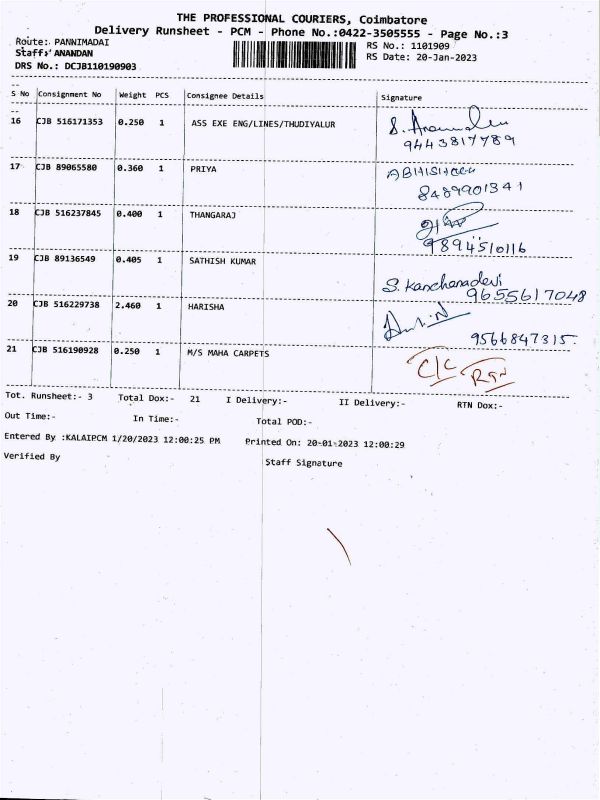 THE PROFESSIONAL COURIERS, Coimbatore
Delivery Runsheet - PCM - Phone No.:0422-3505555 - Page No.:3
Route: PANNIMADAI
RS No.: 1101909
Staff: ANANDAN
RS Date: 20-Jan-2023
DRS No.: DCJB110190903
S No Consignment No Weight PCS Consignee Details Signature
16 CJB 516171353 0.250 1 ASS EXE ENG/LINES/THUDIYALUR
9443817789
17 CJB 89065580 0.360 1 PRIYA
8489901341
18 CJB 516237845 0.400 1 THANGARAJ
9894510116
19 CJB 89136549 0.405 1 SATHISH KUMAR
S. Kanchanadevi
9655617048
20 CJB 516229738 2.460 1 HARISHA
9566847315.
21 CJB 516190928 0.250 1 M/S MAHA CARPETS
C/C RTN
Tot. Runsheet:- 3 Total Dox:- 21 I Delivery:- II Delivery:- RTN Dox:-
Out Time:- In Time:- Total POD:-
Entered By :KALAIPCM 1/20/2023 12:00:25 PM Printed On: 20-01-2023 12:00:29
Verified By Staff Signature